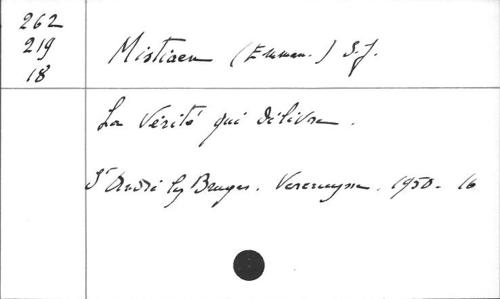 262
219
18
Mistiaen (Emman.) S.J.
La Vérité qui délivre.
St André lez Bruges. Vercruysse. 1950. 16